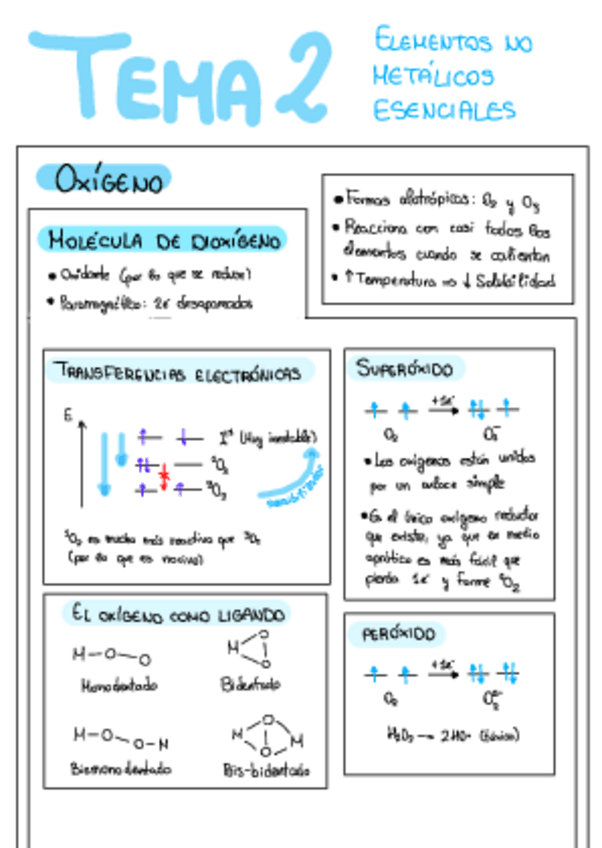 TEMA 2
ELEMENTOS NO
METÁLICOS
ESENCIALES
OXÍGENO
• Formas alotrópicas: O₂ y O₃
• Reacciona con casi todos los
elementos cuando se calientan
• ↑ Temperatura ⇒ ↓ Solubilidad
MOLÉCULA DE DIOXÍGENO
• Oxidante (por lo que se reduce)
• Paramagnético: 2e⁻ desapareados
TRANSFERENCIAS ELECTRÓNICAS
E
(Muy inestable)
¹O₂
³O₂
sensibilizador
¹O₂ es mucho más reactivo que ³O₂
(por lo que es nocivo)
SUPERÓXIDO
+1e⁻
O₂ O₂⁻
• Los oxígenos están unidos
por un enlace simple
• Es el único oxígeno reductor
que existe, ya que en medio
aprótico es más fácil que
pierda 1e⁻ y forme O₂
EL OXÍGENO COMO LIGANDO
M-O-O
Monodentado
M O O
Bidentado
M-O-O-M
Bismonodentado
M O O M
Bis-bidentado
PERÓXIDO
+1e⁻
O₂ O₂²⁻
H₂O₂ → 2HO·